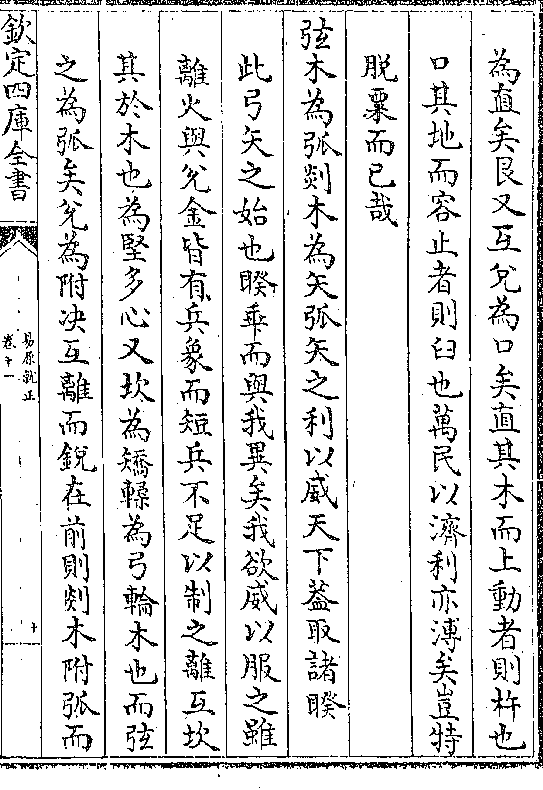 為直矣艮又互兌為口矣直其木而上動者則杵也
口其地而容止者則臼也萬民以濟利亦溥矣豈特
脫粟而已哉
弦木為弧剡木為矢弧矢之利以威天下葢取諸睽
此弓矢之始也睽乖而與我異矣我欲威以服之雖
離火與兌金皆有兵象而短兵不足以制之離互坎
其於木也為堅多心又坎為矯輮為弓輪木也而弦
之為弧矣兌為附决互離而銳在前則剡木附弧而
欽定四庫全書
易原就正
卷十一
十